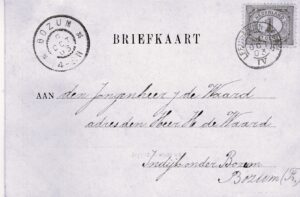 BOZUM
4-8N
BRIEFKAART
AAN den Jongenheer J de Waard
adres den Heer H de Waard
Indijk onder Bozum
Bozum (Fr.)